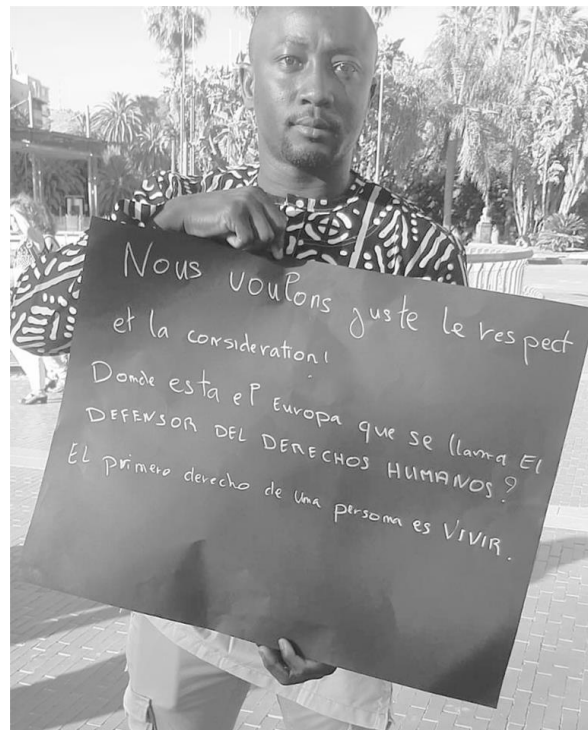 Nous voulons juste le respect
et la consideration!
Donde esta el Europa que se llama El
DEFENSOR DEL DERECHOS HUMANOS?
El primero derecho de una persona es VIVIR.